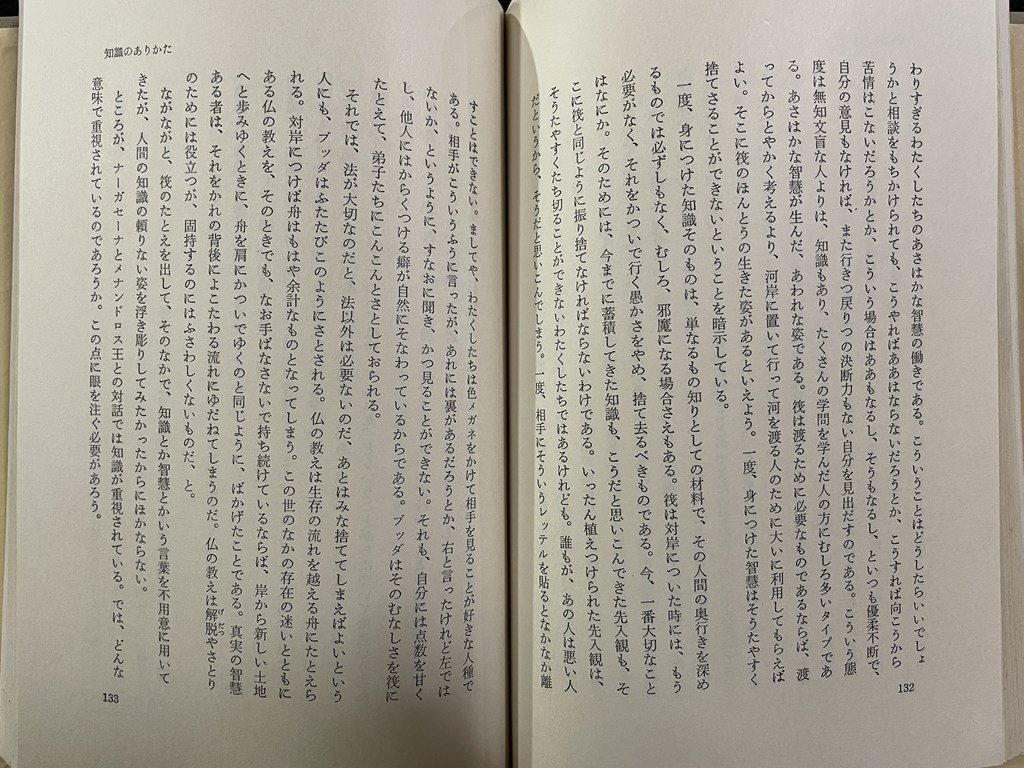 わりすぎるわたくしたちのあさはかな智慧の働きである。こういうことはどうしたらいいでしょ
うかと相談をもちかけられても、こうやればああはならないだろうとか、こうすれば向こうから
苦情はこないだろうかとか、こういう場合はああもなるし、そうもなるし、といつも優柔不断で、
自分の意見もなければ、また行きつ戻りつの決断力もない自分を見出だすのである。こういう態
度は無知文盲な人よりは、知識もあり、たくさんの学問を学んだ人の方にむしろ多いタイプであ
る。あさはかな智慧が生んだ、あわれな姿である。筏は渡るために必要なものであるならば、渡
ってからとやかく考えるより、河岸に置いて行って河を渡る人のために大いに利用してもらえば
よい。そこに筏のほんとうの生きた姿があるといえよう。一度、身につけた智慧はそうたやすく
捨てさることができないということを暗示している。
一度、身につけた知識そのものは、単なるもの知りとしての材料で、その人間の奥行きを深め
るものでは必ずしもなく、むしろ、邪魔になる場合さえもある。筏は対岸についた時には、もう
必要がなく、それをかついで行く愚かさをやめ、捨て去るべきものである。今、一番大切なこと
はなにか。そのためには、今までに蓄積してきた知識も、こうだと思いこんできた先入観も、そ
こに筏と同じように振り捨てなければならないわけである。いったん植えつけられた先入観は、
そうたやすくたち切ることができないわたくしたちではあるけれども。誰もが、あの人は悪い人
だというから、そうだと思いこんでしまう。一度、相手にそういうレッテルを貼るとなかなか離
132
知識のありかた
すことはできない。ましてや、わたくしたちは色メガネをかけて相手を見ることが好きな人種で
ある。相手がこういうふうに言ったが、あれには裏があるだろうとか、右と言ったけれど左では
ないか、というように、すなおに聞き、かつ見ることができない。それも、自分には点数を甘く
し、他人にはからくつける癖が自然にそなわっているからである。ブッダはそのむなしさを筏に
たとえて、弟子たちにこんこんとさとしておられる。
それでは、法が大切なのだと、法以外は必要ないのだ、あとはみな捨ててしまえばよいという
人にも、ブッダはふたたびこのようにさとされる。仏の教えは生存の流れを越える舟にたとえら
れる。対岸につけば舟はもはや余計なものとなってしまう。この世のなかの存在の迷いとともに
ある仏の教えを、そのときでも、なお手ばなさないで持ち続けているならば、岸から新しい土地
へと歩みゆくときに、舟を肩にかついでゆくのと同じように、ばかげたことである。真実の智慧
ある者は、それをかれの背後によこたわる流れにゆだねてしまうのだ。仏の教えは解脱やさとり
のためには役立つが、固持するのにはふさわしくないものだ、と。
ながながと、筏のたとえを出して、そのなかで、知識とか智慧とかいう言葉を不用意に用いて
きたが、人間の知識の頼りない姿を浮き彫りしてみたかったからにほかならない。
ところが、ナーガセーナとメナンドロス王との対話では知識が重視されている。では、どんな
意味で重視されているのであろうか。この点に眼を注ぐ必要があろう。
133